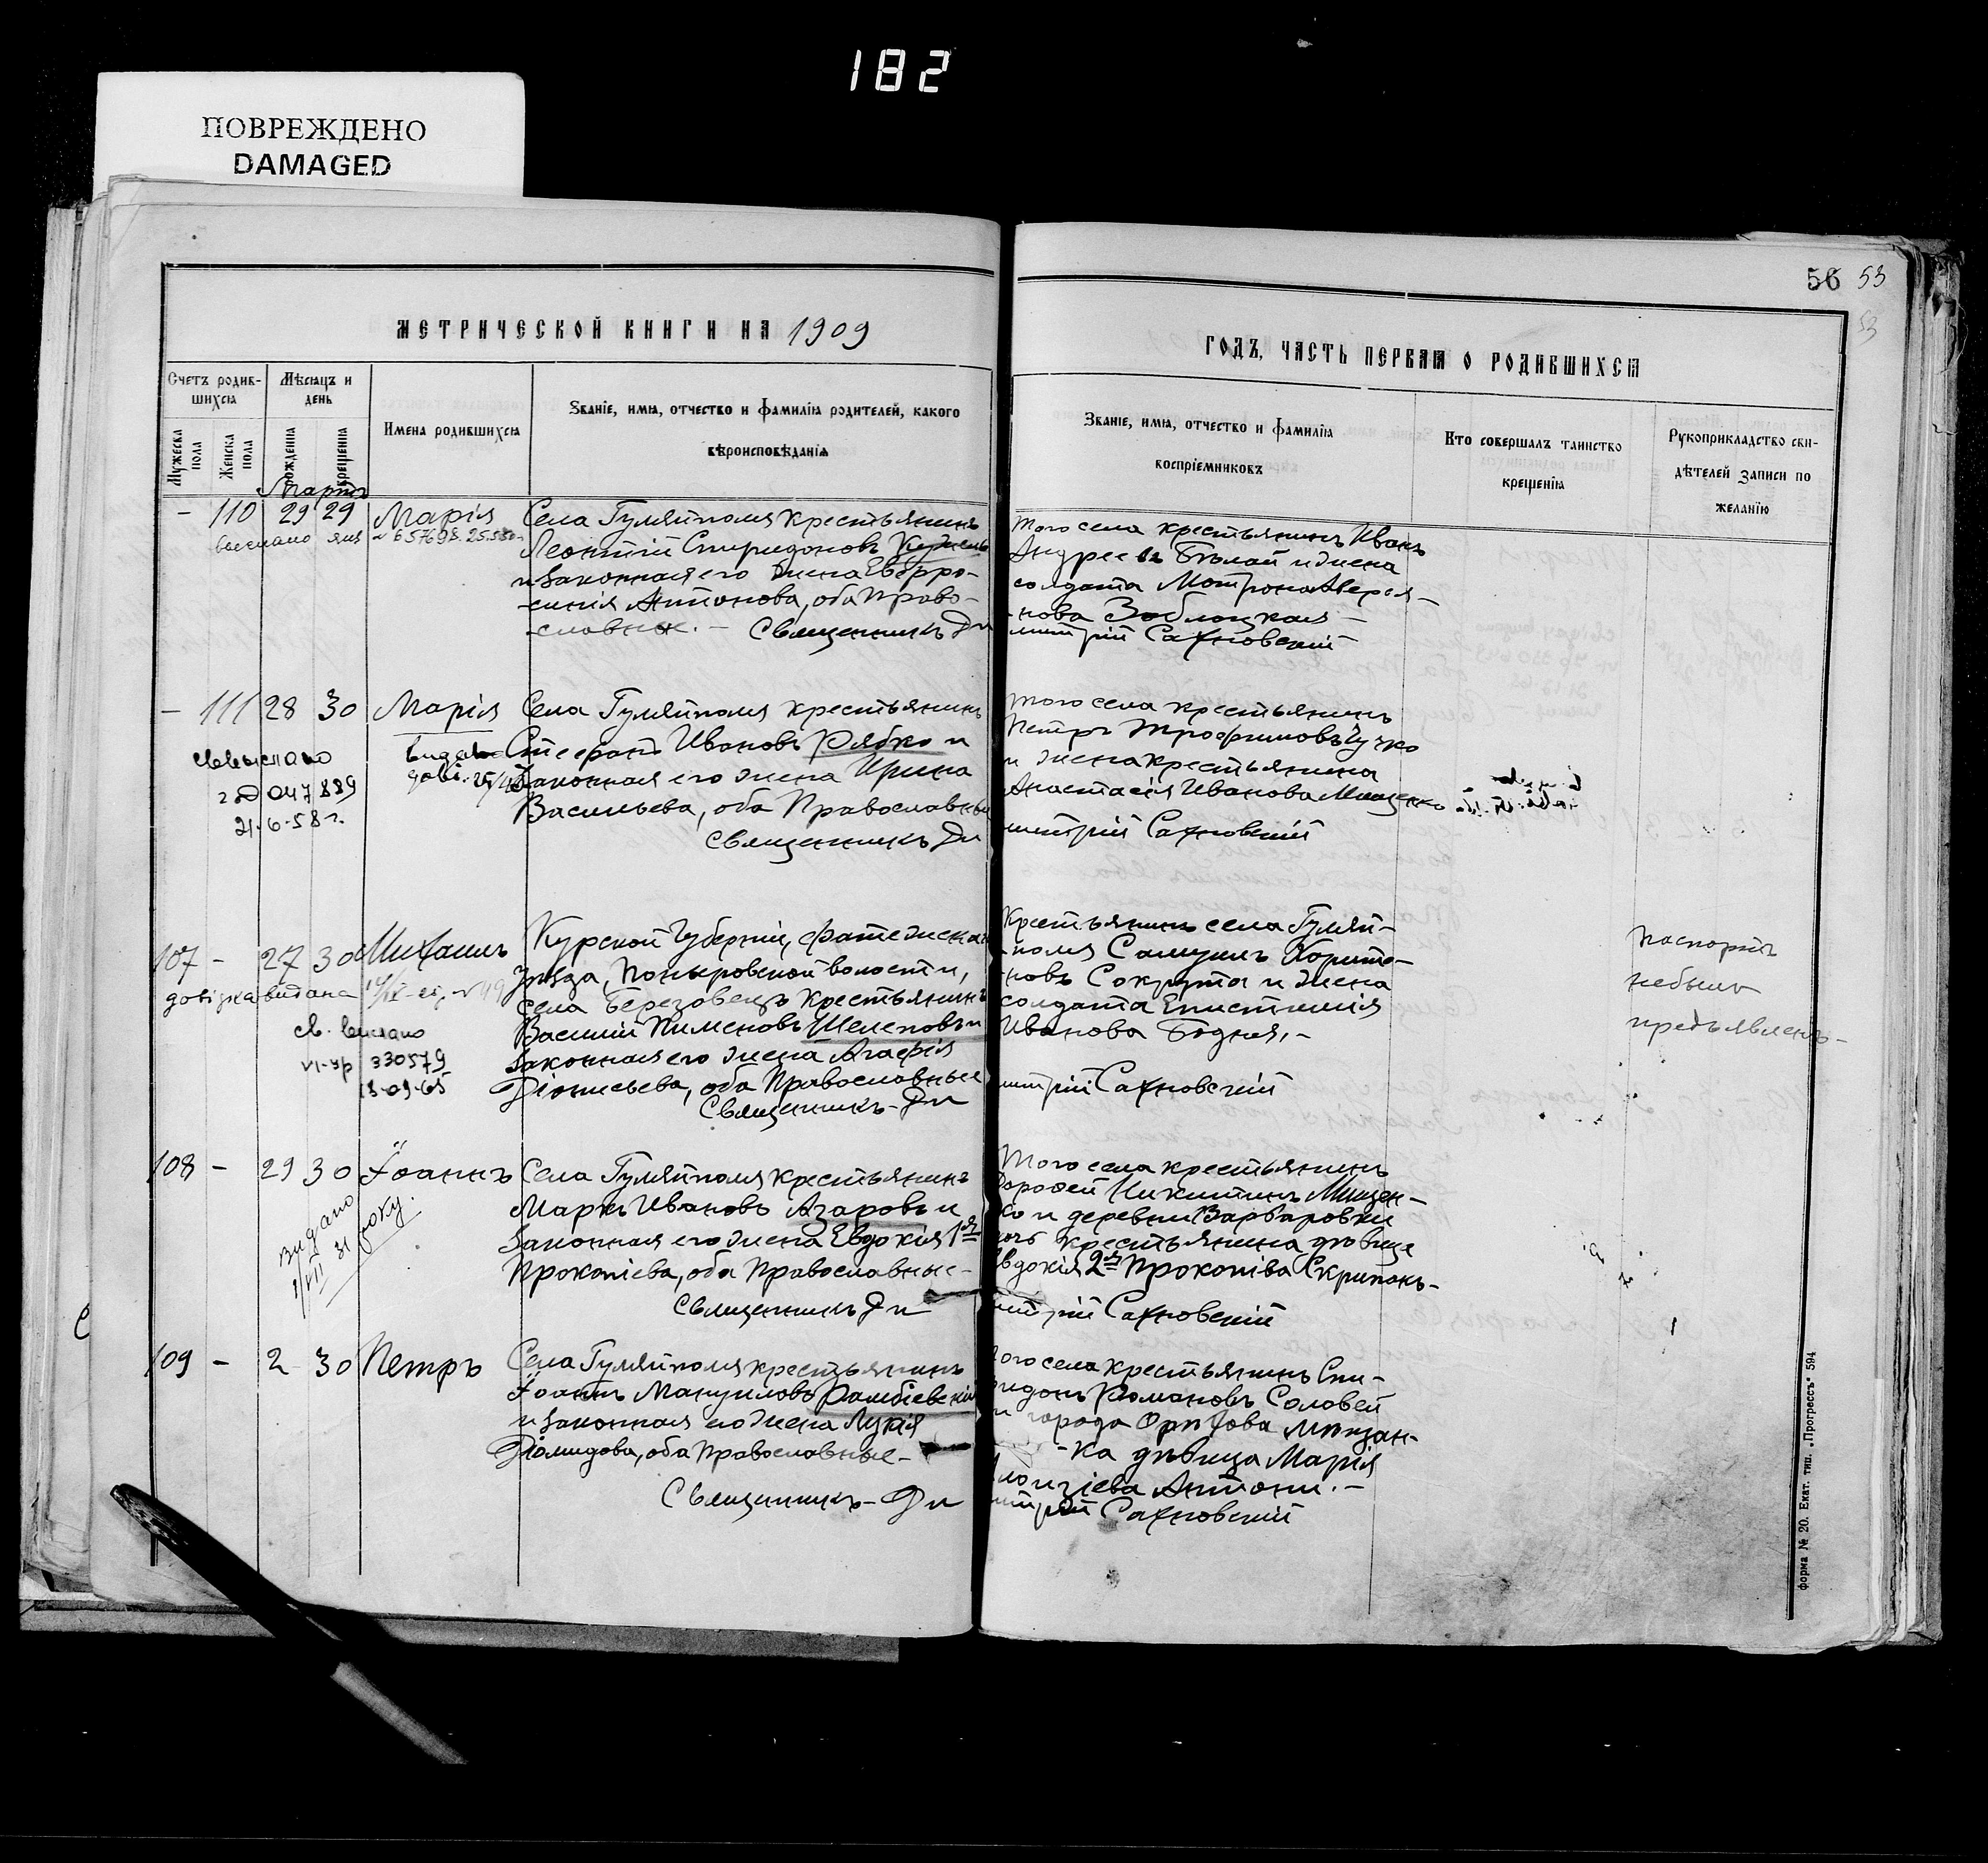 182
ПОВРЕЖДЕНО
DAMAGED
56 53
53
МЕТРИЧЕСКОЙ КНИГИ НА 1909
ГОДЪ, ЧАСТЬ ПЕРВАЯ О РОДИВШИХСЯ
Счетъ родив-
шихся
Мужеска пола
Женска пола
Мѣсяцъ и
день
рожденія
крещенія
Имена родившихся
Званіе, имя, отчество и фамилія родителей, какого
вѣроисповѣданія
Званіе, имя, отчество и фамилія
воспріемниковъ
Кто совершалъ таинство
крещенія
Рукоприкладство сви-
дѣтелей записи по
желанію
Мартъ
- 110 29 29 Марія
выслано
Села Гуляйполя крестьянинъ
Леонтій Спиридоновъ
и законная его жена Евфро-
-синія Антонова, оба Право-
-славные. - Священникъ Ди
того села крестьянинъ Иванъ
Андреевъ Бѣлай и жена
солдата Матрона Авера-
-нова Заблоцкая -
митрій Сахновскій
- 111 28 30 Марія
свыслано
047889
21-6-58 г.
Села Гуляйполя крестьянинъ
Стефанъ Ивановъ Рябко и
законная его жена Ирина
Васильева, оба Православные
Священникъ Ди
того села крестьянинъ
Петръ Трофимовъ Чучко
и жена крестьянина
Анастасія Иванова Мищенко
митрій Сахновскій
107 - 27 30 Михаилъ
довідка видана
св. выслано
330579
18-09-65
Курской Губерніи, Фатежска
уѣзда, Поныровской волости,
села Березовецъ крестьянинъ
Василій Пименовъ Шелеповъ и
законная его жена Агафія
Діонисьева, оба Православные
Священникъ - Ди
Крестьянинъ села Гуляй-
-поля Самуилъ Харито-
-новъ Сокрута и жена
солдата Епистимія
Иванова Бодня, -
митрій Сахновскій
паспортъ
небылъ
предъявленъ-
108 - 29 30 Іоаннъ
видано
1/VII 31 року.
Села Гуляйполя крестьянинъ
Маркъ Ивановъ Азаровъ и
законная его жена Евдокія 1я
Прокопіева, оба Православные-
Священникъ Ди
Того села крестьянинъ
Дорофей Никитинъ Мищен-
ко и деревни Варваровки
дочь крестьянина дѣвица
Евдокія 2я Прокопіева Скрипокъ-
митрій Сахновскій
109 - 2 30 Петръ
Села Гуляйполя крестьянинъ
Іоаннъ Мануиловъ
и законная его жена Лукія
Діомидова, оба Православные-
Священникъ - Ди
того села крестьянинъ Спи-
ридонъ Романовъ Соловей
и города Орѣхова мѣщан-
-ка дѣвица Марія
Антони. -
митрій Сахновскій
Форма № 20. Екат. тип. „Прогрессъ“ 594